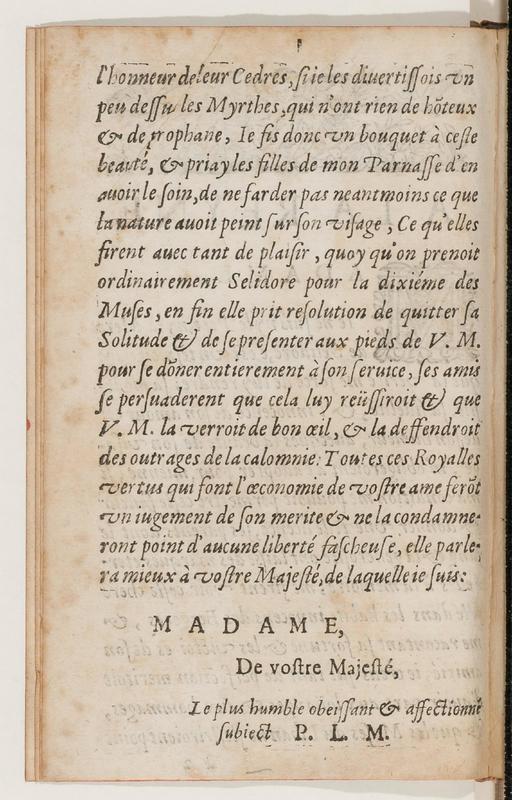 l'honneur deleur Cedres, si ie les diuertissois vn
peu dessu les Myrthes, qui n'ont rien de hõteux
& de prophane, Ie fis donc vn bouquet à ceste
beauté, & priay les filles de mon Parnasse d'en
auoir le soin, de ne farder pas neantmoins ce que
la nature auoit peint sur son visage, Ce qu'elles
firent auec tant de plaisir, quoy qu'on prenoit
ordinairement Selidore pour la dixiéme des
Muses, en fin elle prit resolution de quitter sa
Solitude & de se presenter aux pieds de V. M.
pour se dõner entierement à son seruice, ses amis
se persuaderent que cela luy reüssiroit & que
V. M. la verroit de bon œil, & la deffendroit
des outrages de la calomnie: Toutes ces Royalles
vertus qui font l'œconomie de vostre ame ferõt
vn iugement de son merite & ne la condamne-
ront point d'aucune liberté fascheuse, elle parle-
ra mieux à vostre Majesté, de laquelle ie suis:
MADAME,
De vostre Majesté,
Le plus humble obeissant & affectionné
subiect P. L. M.